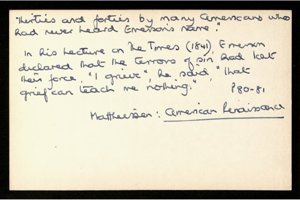 thirties and forties by many Americans who
had never heard Emerson's name."
In his Lecture on the Times (1841), Emerson
declared that the terrors of sin had lost
their force. "I grieve", he said, "that
grief can teach me nothing". P80-81
Matthiessen: American Renaissance